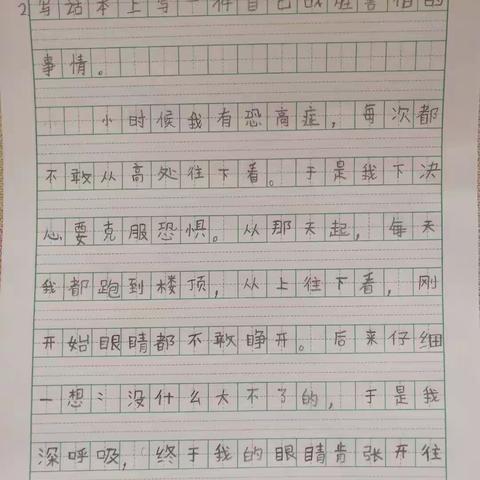 2写话本上写一件自己战胜害怕的
事情。
小时候我有恐高症，每次都
不敢从高处往下看。于是我下决
心要克服恐惧。从那天起，每天
我都跑到楼顶，从上往下看，刚
开始眼睛都不敢睁开。后来仔细
一想：没什么大不了的，于是我
深呼吸，终于我的眼睛肯张开往